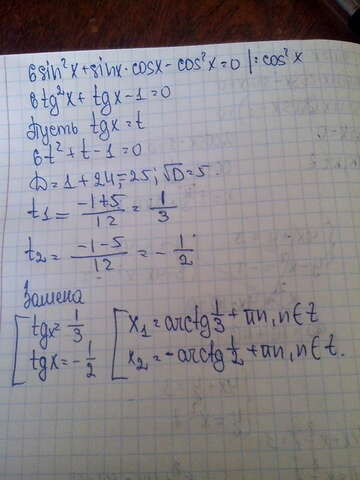 6sin²x+sinx·cosx-cos²x=0 |:cos²x
6tg²x+tgx-1=0
Пусть tgx=t
6t²+t-1=0
D=1+24=25; √D=5.
t1=(-1+5)/12=1/3
t2=(-1-5)/12=-1/2
Замена
[tgx=1/3 [x1=arctg1/3+πn,n∈Z
[tgx=-1/2 [x2=-arctg1/2+πn,n∈Z.